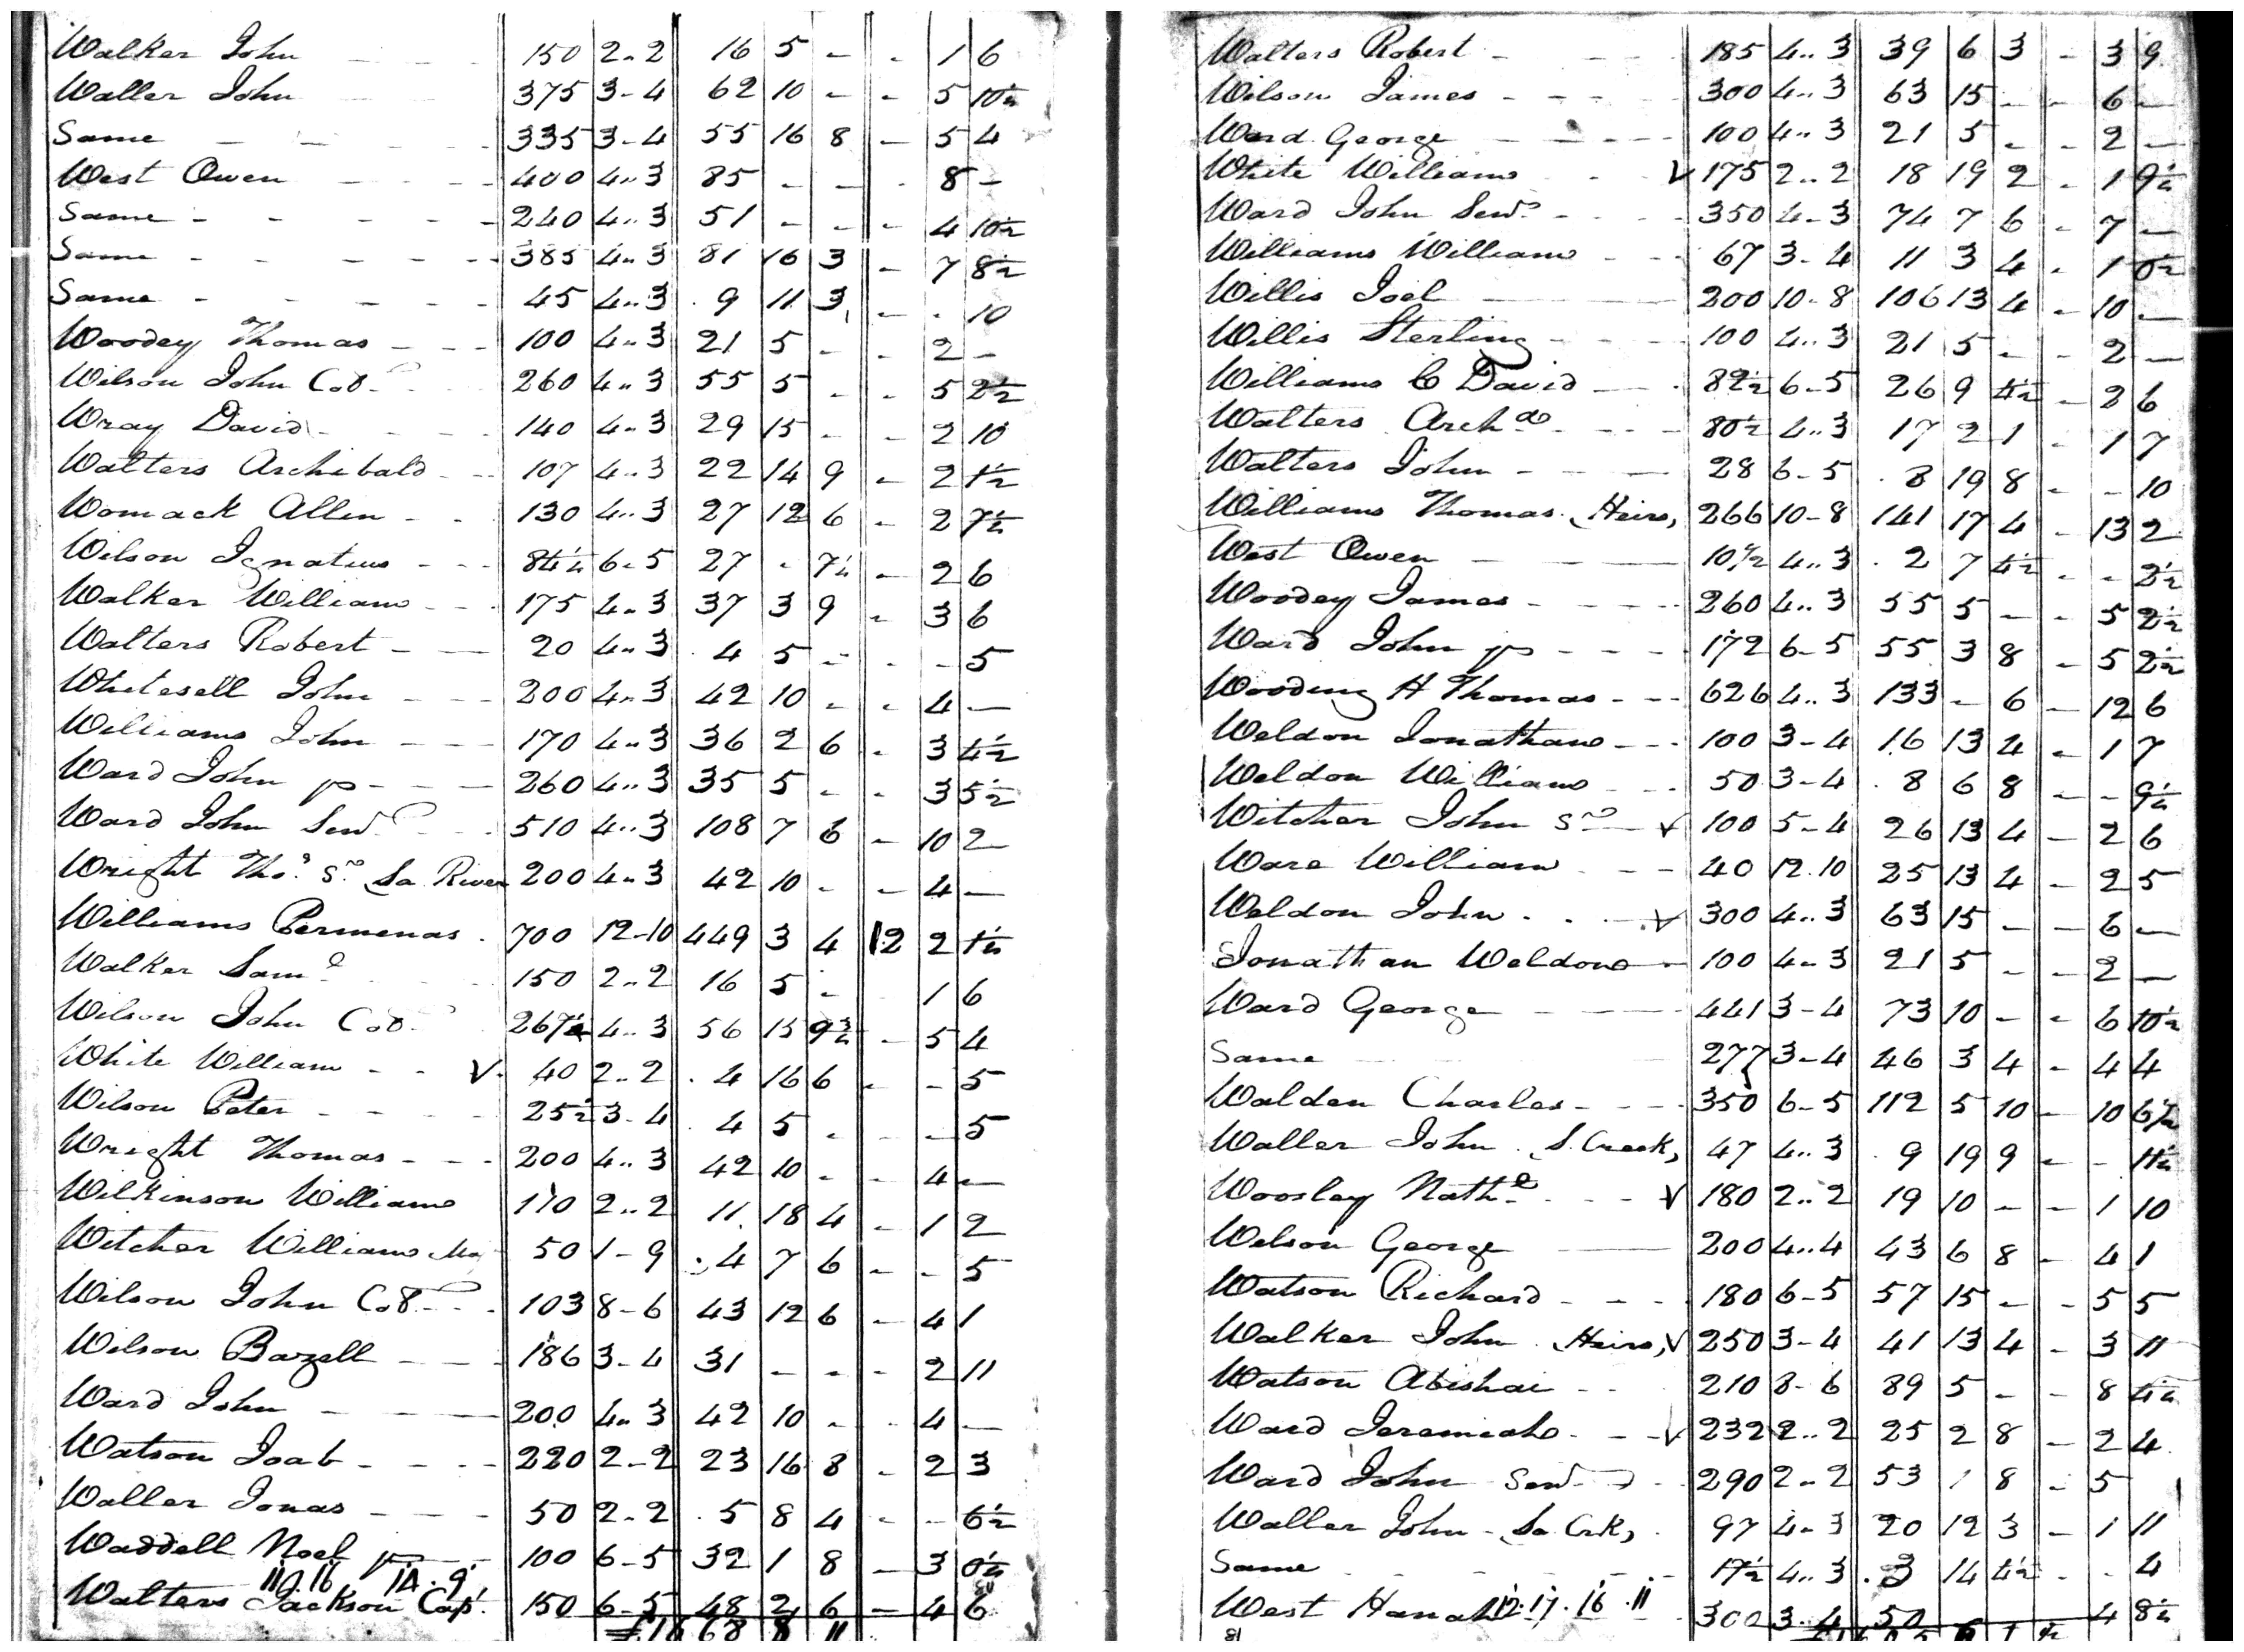 Walker John - - - 150 2..2 16 5 - - 1 6
Waller John 375 3-4 62 10 - - 5 10½
Same - - - - 335 3-4 55 16 8 - 5 4
West Owen - - - - 400 4..3 85 - - - 8 -
Same - - - - - 240 4..3 51 - - - 4 10½
Same - - - - - 385 4..3 81 16 3 - 7 8½
Same - - - - 45 4..3 9 11 3 - - 10
Woodey Thomas - - - 100 4..3 21 5 - - 2 -
Wilson John Col. 260 4..3 55 5 - - 5 2½
Wray David - - - 140 4..3 29 15 - - 2 10
Walters Archibald - - 107 4..3 22 14 9 - 2 1½
Womack Allen - - 130 4..3 27 12 6 - 2 7½
Wilson Ignatius - - - 84¼ 6-5 27 - 7¼ - 2 6
Walker William - - - 175 4..3 37 3 9 - 3 6
Walters Robert - - 20 4..3 4 5 - - - 5
Whitesell John - - - 200 4..3 42 10 - - 4 -
Williams John - - - 170 4..3 36 2 6 - 3 4½
Ward John jr - - - 260 4..3 35 5 - - 3 5½
Ward John Senr - - 510 4..3 108 7 6 - 10 2
Wright Thos. Sr. So River 200 4..3 42 10 - - 4 -
Williams Permenas . 700 12-10 449 3 4 12 2 1½
Walker Saml 150 2..2 16 5 - 1 6
Wilson John Col. 267½ 4..3 56 15 9¾ - 5 4
White William - - V. 40 2..2 4 16 6 - - 5
Wilson Peter - - - - 25½ 3-4 4 5 - - - 5
Wright Thomas - - - 200 4..3 42 10 - - 4 -
Wilkinson William 110 2..2 11 18 4 - 1 2
Witcher William 50 1-9 4 7 6 - - 5
Wilson John Col. - - 103 8-6 43 12 6 - 4 1
Wilson Bazell - - - 186 3-4 31 - - - 2 11
Ward John - - - 200 4..3 42 10 - - 4 -
Watson Joab - - - - 220 2-2 23 16 8 - 2 3
Waller Jonas - - - 50 2-2 5 8 4 - - 6½
Waddell Noel jr 100 6-5 32 1 8 - 3 0½
Walters Jackson Capt. 150 6-5 48 2 6 - 4 6
£1668 8 11
Walters Robert - - - 185 4..3 39 6 3 - 3 9
Wilson James - - - - 300 4..3 63 15 - - 6 -
Ward George - - - - 100 4..3 21 5 - - 2 -
White William - - V 175 2..2 18 19 2 - 1 9½
Ward John Senr - - - - 350 4-3 74 7 6 - 7 -
Williams William - - - 67 3-4 11 3 4 - 1 0½
Willis Joel - - 200 10-8 106 13 4 - 10 -
Willis Sterling - - - 100 4..3 21 5 - - 2 -
Williams C David - - 82½ 6-5 26 9 4½ - 2 6
Walters Archd - - - 80½ 4..3 17 2 1 - 1 7
Walters John - - - 28 6-5 8 19 8 - - 10
Williams Thomas Heirs, 266 10-8 141 17 4 - 13 2
West Owen - - 10½ 4..3 2 7 4½ - - 2½
Woodey James - - - - 260 4..3 55 5 - - 5 2½
Ward John jr - - - - 172 6-5 55 3 8 - 5 2½
Wooding H Thomas - - 626 4..3 133 - 6 - 12 6
Weldon Jonathan - - - 100 3-4 16 13 4 - 1 7
Weldon William - - 50 3-4 8 6 8 - - 9½
Witcher John Sr - V 100 5-4 26 13 4 - 2 6
Ware William - - - 40 12.10 25 13 4 - 2 5
Weldon John - - - V 300 4..3 63 15 - - 6 -
Jonathan Weldon - 100 4-3 21 5 - - 2 -
Ward George - - - 441 3-4 73 10 - - 6 10½
Same 277 3-4 46 3 4 - 4 4
Walden Charles - - - 350 6-5 112 5 10 - 10 6½
Waller John S. Creek, 47 4..3 9 19 9 - - 11½
Woosley Nathl - - V 180 2..2 19 10 - - 1 10
Wilson George - 200 4..4 43 6 8 - 4 1
Watson Richard - - - 180 6-5 57 15 - - 5 5
Walker John Heirs, V 250 3-4 41 13 4 - 3 11
Watson Abishai - - 210 8-6 89 5 - - 8 4½
Ward Jeremiah - - V 232 2..2 25 2 8 - 2 4
Ward John Senr - 290 2-2 53 1 8 - 5
Waller John - So. Crk, 97 4-3 20 12 3 - 1 11
Same - - - - 17½ 4..3 3 14 4½ - - 4
West Hanah 12.17.16.11 300 3-4 50 4 8½